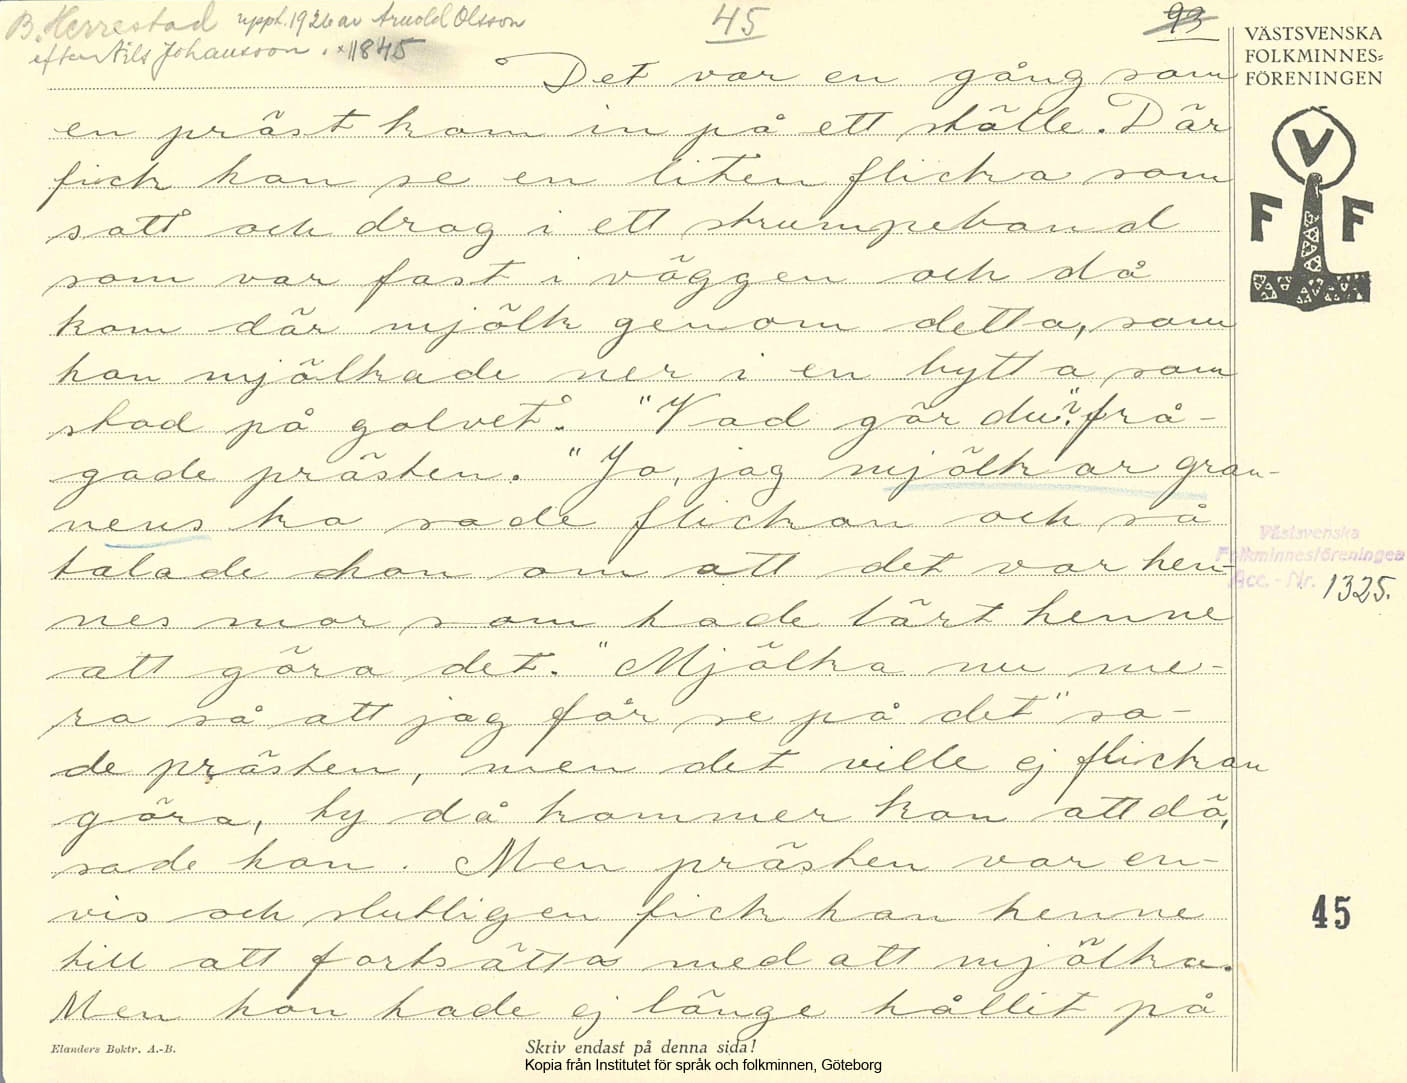 B. Herrestad uppt. 1926 av Arnold Olsson
efter Nils Johansson. *1845
45
93
VÄSTSVENSKA
FOLKMINNES=
FÖRENINGEN
V
F F
Det var en gång som
en präst kom in på ett ställe. Där
fick han se en liten flicka som
satt och drog i ett strumpeband
som var fast i väggen och då
kom där mjölk genom detta, som
hon mjölkade ner i en bytta som
stod på golvet. "Vad gör du?" frå-
gade prästen. "Jo, jag mjölkar gran-
nens ko sade flickan och så
talade hon om att det var hen-
nes mor som hade lärt henne
att göra det. "Mjölka nu me-
ra så att jag får se på det" sa-
de prästen, men det ville ej flickan
göra, ty då kommer kon att dö,
sade hon. Men prästen var en-
vis och slutligen fick han henne
till att fortsätta med att mjölka.
Men hon hade ej länge hållit på
Västsvenska
Folkminnesföreningen
Acc. - Nr. 1325.
45
Elanders Boktr. A.-B.
Skriv endast på denna sida!
Kopia från Institutet för språk och folkminnen, Göteborg